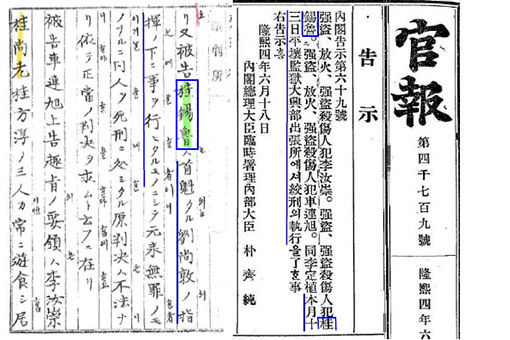 官報
第四千七百九號
隆熙四年六
告示
內閣告示第六十九號
强盜、放火、强盜殺傷人犯李汝崇。强盜、强盜殺傷人犯桂
錫魯。强盜、放火、强盜殺傷人犯車連旭。同李定植本月十
三日平壤監獄大興部出張所에셔絞刑의執行을了훈事
右告示흠
隆熙四年六月十八日
內閣總理大臣臨時署理內部大臣 朴齊純
リ又被告桂錫魯ノ首魁タル劉尚敦ノ指
揮ノ下ニ事ヲ行ヒタルモノニシテ元來無罪ノモ
ノナルニ同人ヲ死刑ニ処シタル原判決ハ不法ナ
リ依テ正當ノ判決ヲ求ムト云フニ在リ
被告車連旭上告趣旨ノ要領ハ李汝崇
桂尚老桂方淳ノ三人カ常ニ遊食シ居